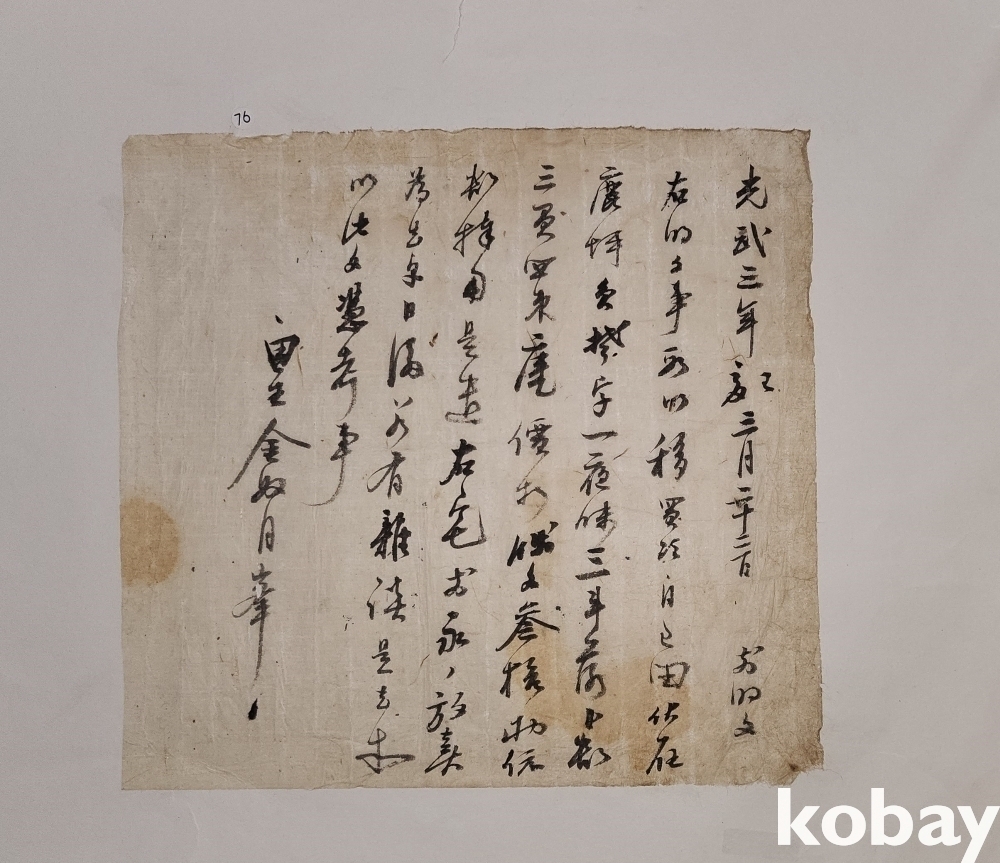 光武三年己亥三月二十二日 前明文
右明文事段以移買次自己田伏在
坪員字一夜味三斗落卜數
三負四束㢱價折錢文參拾兩依
數捧用是遣右宅前永永放賣
爲去乎日後若有雜談是去等
以此文憑考事
畓主金奴月
76
kobay